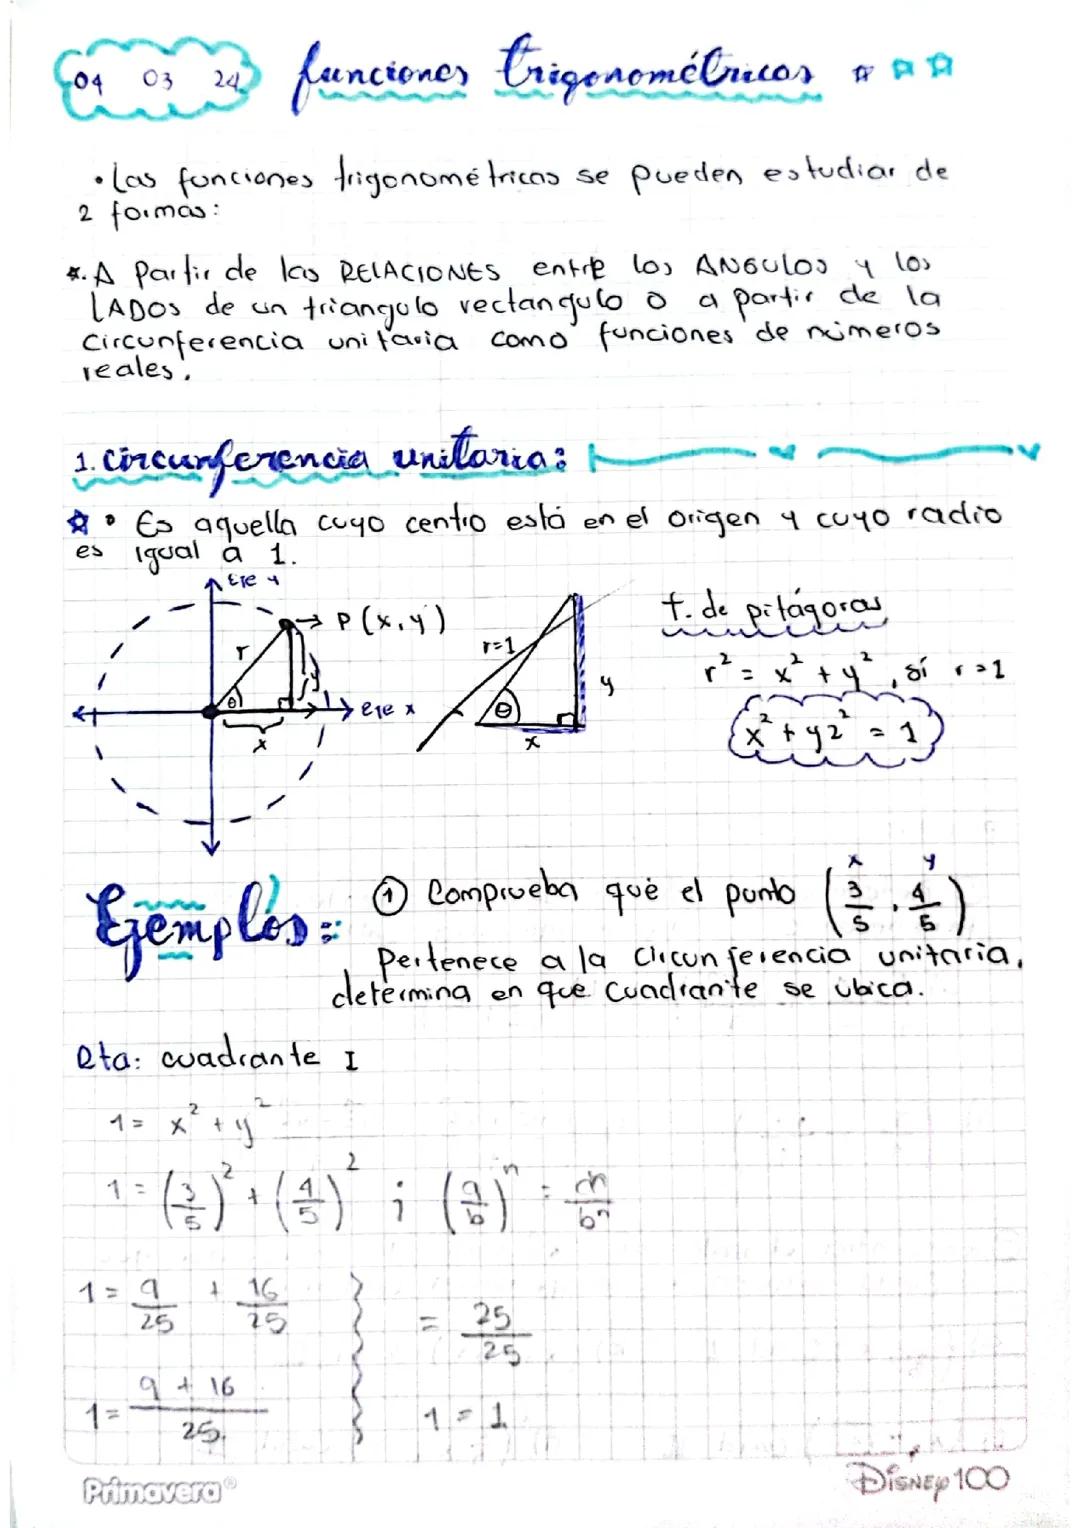 04 03 24 funciones trigonométricas
• Las funciones trigonométricas se pueden estudiar de
2 formas:
*. A Partir de las RELACIONES entre los ANGULOS y los
LADOS de un triangulo rectangulo o a partir de la
circunferencia unitaria como funciones de números
reales.
1. circunferencia unitaria:
• Es aquella cuyo centro está en el origen y cuyo radio
es igual a 1.
Eje y
P (x, y)
r
y
θ
eje x
x
r=1
y
θ
x
t. de pitágoras
r² = x² + y², sí r=1
x² + y2² = 1
Ejemplos:
x y
① Comprueba què el punto (3/5, 4/5)
Pertenece a la circunferencia unitaria,
determina en que cuadrante se ubica.
Rta: cuadrante I
1 = x² + y²
1 = (3/5)² + (4/5)² ; (a/b)ⁿ = aⁿ/bⁿ
1 = 9/25 + 16/25
= 25/25
1 = 9 + 16/25.
1 = 1
Primavera®
DISNEY 100